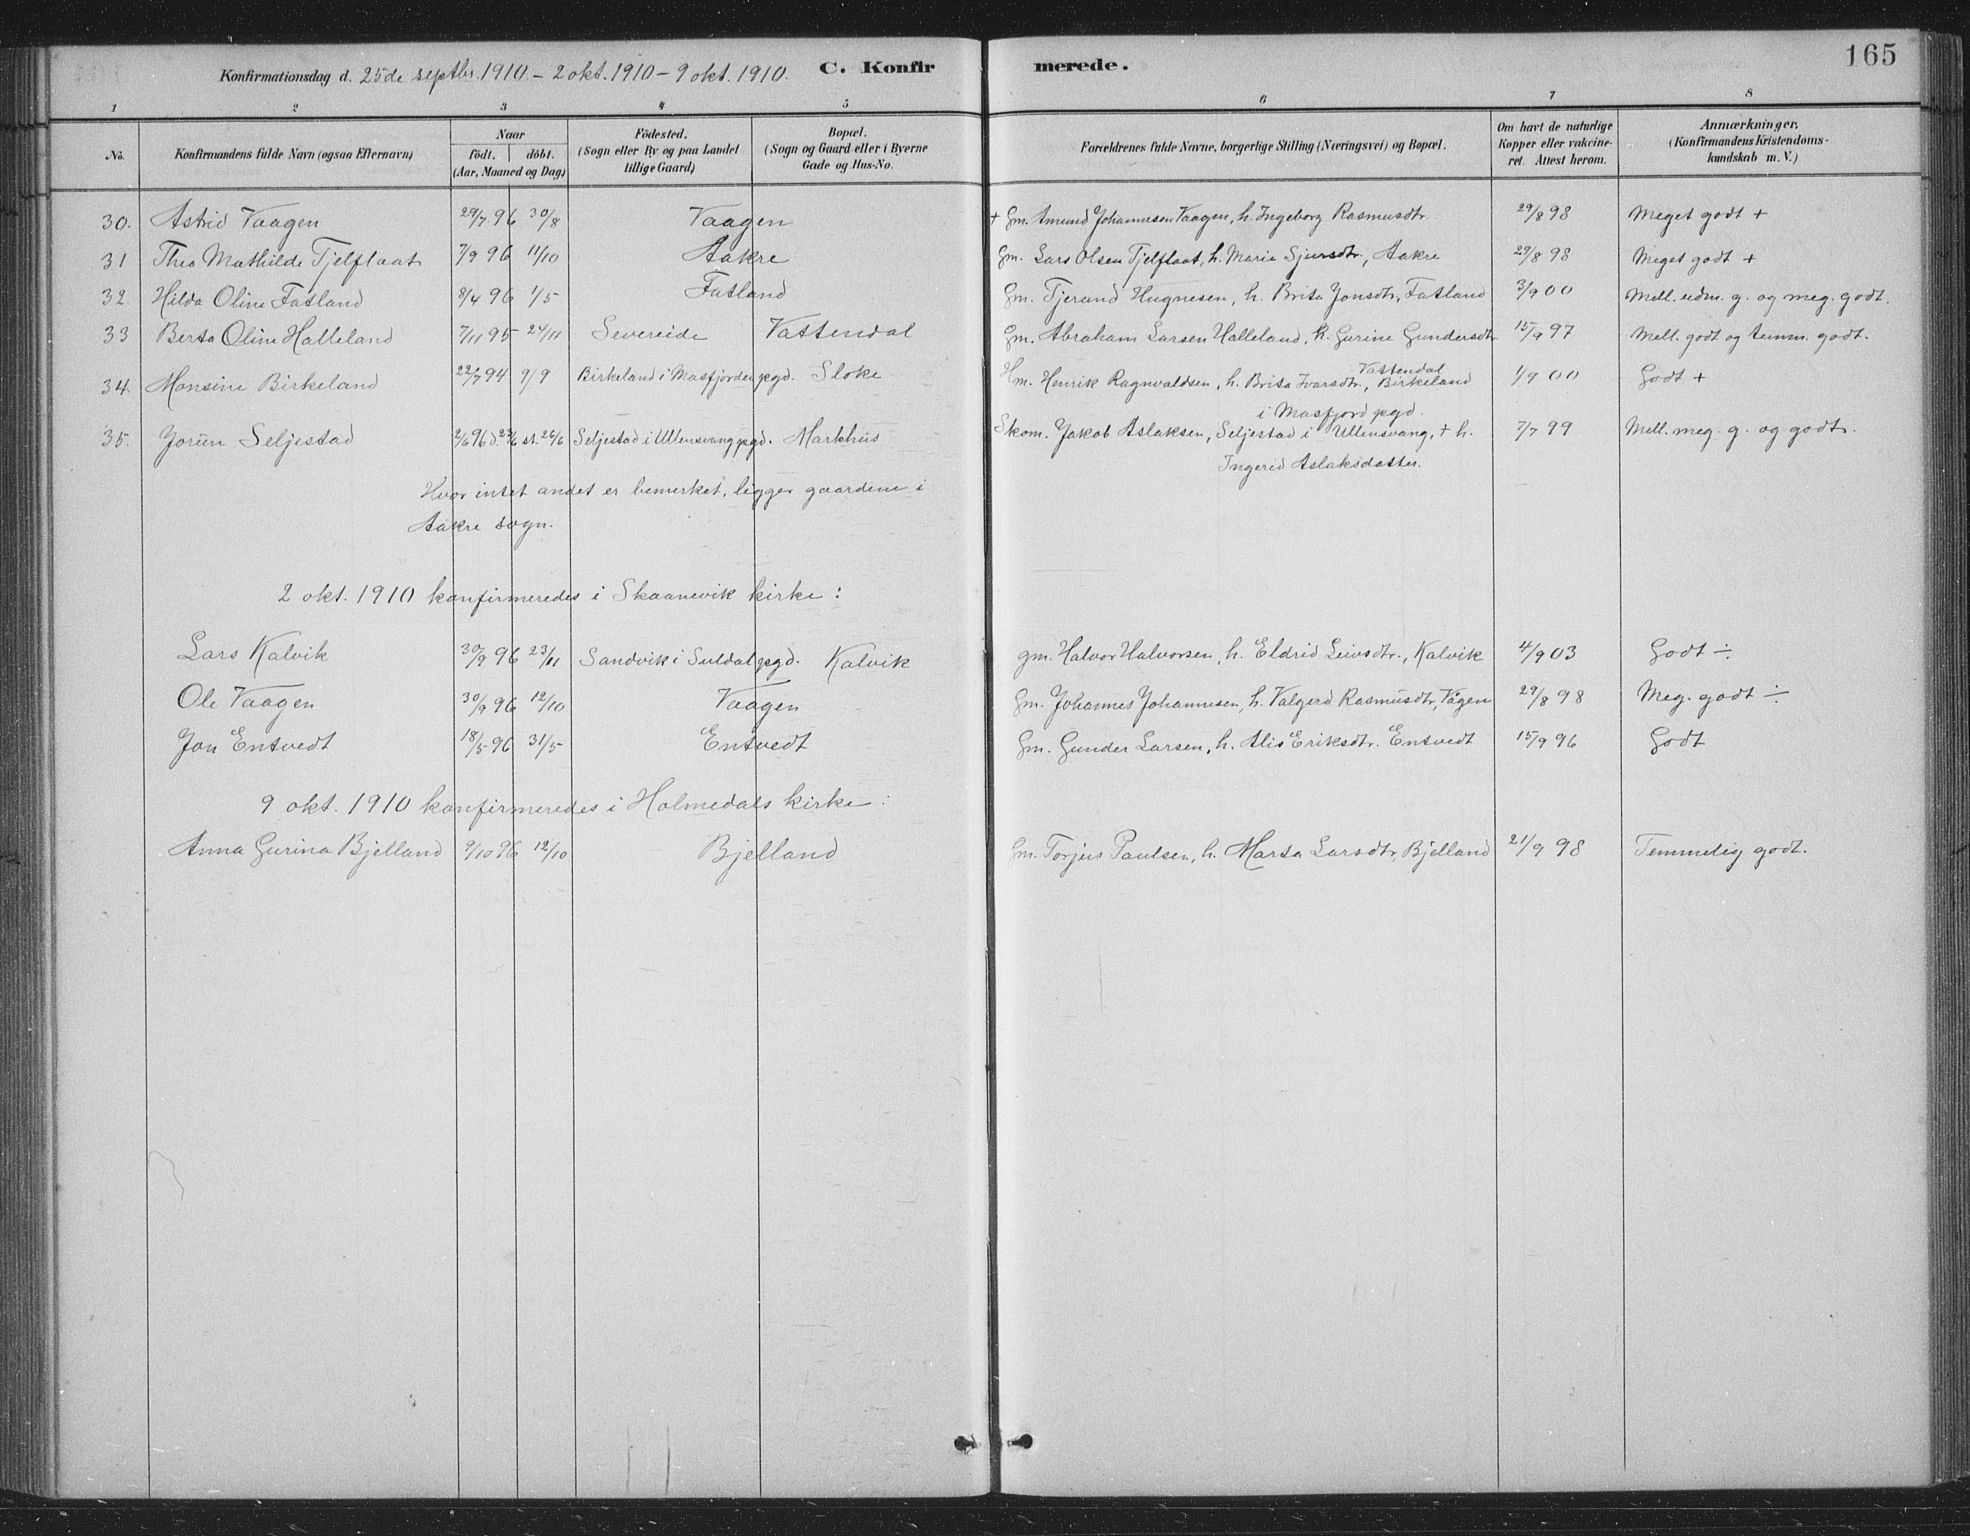 165
Konfirmationsdag d. 25de septbr. 1910 - 2 okt. 1910 - 9 okt. 1910. C. Konfirmerede.
1 2 3 4 5 6 7 8
No. Konfirmandens fulde Navn (ogsaa Efternavn) Naar födt. döbt. (Aar, Maaned og Dag) Födested. (Sogn eller By og paa Landet tillige Gaard) Bopæl. (Sogn og Gaard eller i Byerne Gade og Hus-No. Forældrenes fulde Navne, borgerlige Stilling (Næringsvei) og Bopæl. Om havt de naturlige Kopper eller vakcineret. Attest herom. Anmærkninger. (Konfirmandens Kristendomskundskab m. V.)
30. Astrid Vaagen 29/7 96 30/8 Vaagen + Gm. Amund Johannesen Vaagen, h. Ingeborg Rasmusdtr. 29/8 98 Meget godt +
31 Thea Mathilde Tjelflaat 7/9 96 11/10 Aakre Gm. Lars Olsen Tjelflaat, h. Marie Sjursdtr, Aakre 29/8 98 Meget godt +
32. Hilda Oline Fatland 8/4 96 1/5 Fatland Gm. Tjerand Hugnesen, h. Brita Jonsdtr, Fatland 3/9 00 Mell. udm. g. og meg. godt.
33 Berta Oline Halleland 7/11 95 24/11 Severeide Vattendal Gm. Abraham Larsen Halleland, h. Gurine Gundersdtr 15/9 97 Mell. godt og temm. godt.
34. Monsine Birkeland 22/7 94 9/9 Birkeland i Masfjorden pgd. Sloke Hm. Henrik Ragnvaldsen, h. Brita Ivarsdtr, Vattendal Birkeland i Masfjord pgd. 1/9 00 Godt +
35. Jorun Seljestad 2/6 96 d. 23/6 st. 26/6 Seljestad i Ullensvang pgd. Markhus Skom. Jakob Aslaksen, Seljestad i Ullensvang, + h. 7/7 99 Mell. meg. g. og godt.
Ingerid Aslaksdatter.
Hvor intet andet er bemerket, ligger gaardene i
Aakre sogn.
2 okt. 1910 konfirmeredes i Skaanevik kirke:
Lars Kalvik 30/9 96 23/11 Sandvik i Suldal pgd. Kalvik gm. Halvor Halvorsen, h. Eldrid Leivsdtr., Kalvik 4/9 03 Godt ÷
Ole Vaagen 30/9 96 12/10 Vaagen Gm. Johannes Johannesen, h. Valgerd Rasmusdtr, Vågen 29/8 98 Meg. godt ÷
Jon Entvedt 18/5 96 31/5 Entvedt Gm. Gunder Larsen, h. Alis Eriksdtr. Entvedt 15/9 96 Godt
9 okt. 1910 konfirmeredes i Holmedals kirke:
Anna Gurina Bjelland 9/10 96 12/10 Bjelland Gm. Torjus Paulsen, h. Marta Larsdtr, Bjelland 21/9 98 Temmelig godt.